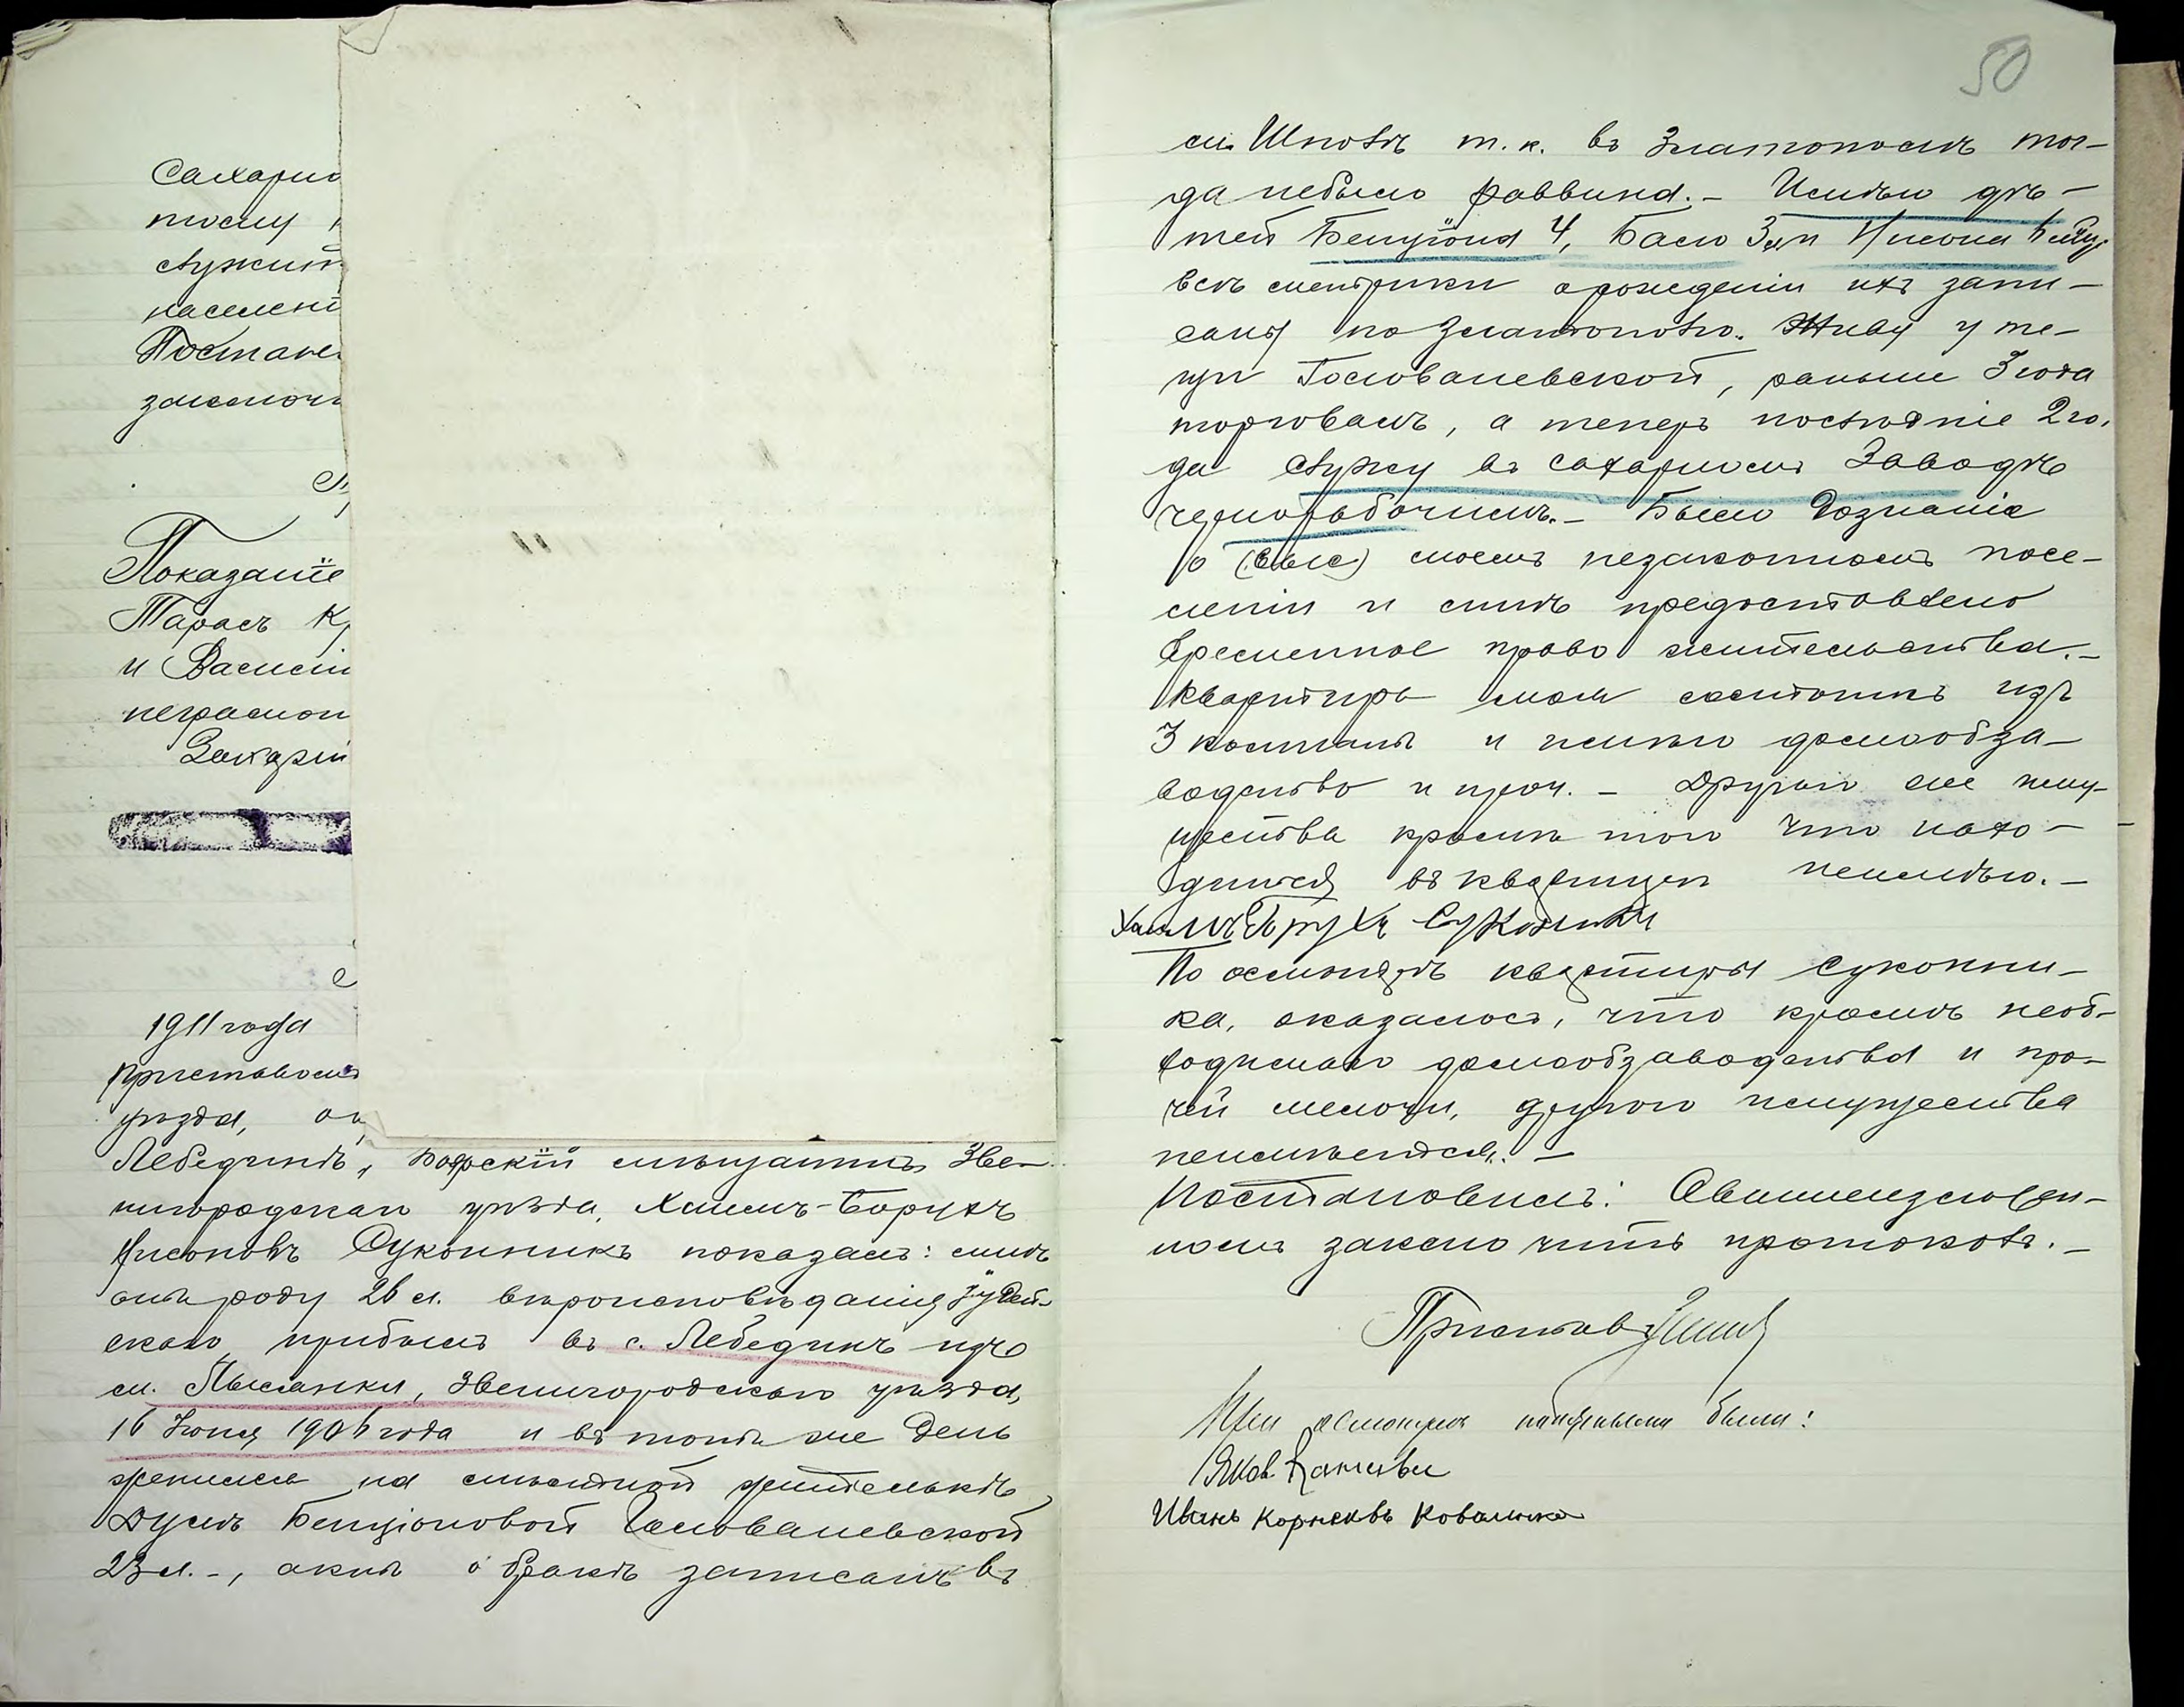 Сахарно
тому
служит
населені
Постано
заключи
Показаніе
Тарасъ Кр
и Василій
неграмот
Захарій
1911 года
Приставомъ
уѣзда, оп
Лебединъ, Боярскій мѣщанинъ Зве-
нигородскаго уѣзда, Хаимъ-Борухъ
Нисоновъ Суконникъ показалъ: мнѣ
отъ роду 26 л. вѣроисповѣданія Іудей-
скаго прибылъ въ с. Лебединъ изъ
м. Лысянки, Звенигородскаго уѣзда,
16 Іюня 1906 года и въ тотъ же день
женился на мѣстной жителькѣ
Дусѣ Бенціоновой Голованевской
23 л.-, актъ о бракѣ записанъ въ
50
м. Шполѣ т. к. въ Златополѣ тог-
да небыло раввина.- Имѣю дѣ-
тей Бенціона 4, Басю 3 и Нисона
всѣ метрики орожденіи ихъ запи-
саны по Златополю. Живу у те-
щи Голованевской, раньше 3 года
торговалъ, а теперъ послѣдніе 2 го-
да служу въ сахарномъ Заводѣ
чернорабочимъ.- Было Дознаніе
о моемъ незаконномъ посе-
леніи и мнѣ предоставлено
временное право жительства.-
Квартира моя состоитъ изъ
3 комнатъ и имѣю домообза-
водство и проч. - Другаго же иму-
щества кромѣ того что нахо-
дится въ квартирѣ неимѣю.-
Хаимъ Брухъ Суконикъ
По осмотрѣ квартиры Суконни-
ка, оказалось, что кромѣ необ-
ходимаго домообзаводства и про-
чей мелочи, другого имущества
неимѣется. -
Постановилъ: О вышеизложен-
номъ заключить протоколъ.-
Приставъ
При осмотрѣ понятыми были:
Яков
Иванъ Корнѣевъ Коваленко